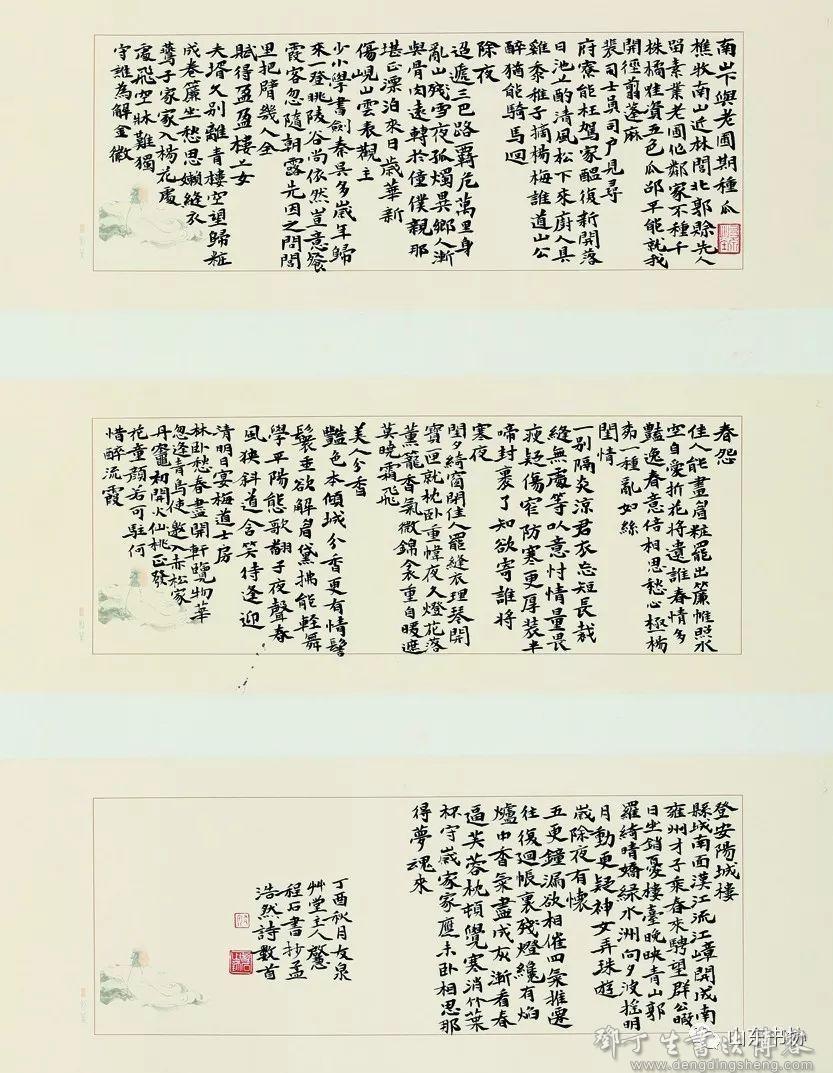 南山下與老圃期種瓜
樵牧南山近林閭北郭賒先人
留素業老圃作鄰家不種千
株橘惟資五色瓜邵平能就我
開徑剪蓬麻
裴司士員司戶見尋
府寮能枉駕家醞復新開落
日池上酌清風松下來廚人具
雞黍稚子摘楊梅誰道山公
醉猶能騎馬回
除夜
迢遞三巴路羈危萬里身
亂山殘雪夜孤燭異鄉人漸
與骨肉遠轉於僮僕親那
堪正漂泊來日歲華新
傷峴山雲表觀主
少小學書劍秦吳多歲年歸
來一登眺陵谷尚依然豈意餐
霞客忽隨朝露先因之問閭
里把臂幾人全
賦得盈盈樓上女
夫壻久別離青樓空望歸粧
成卷簾坐愁思嬾縫衣
鷰子家家入楊花處
處飛空牀難獨
守誰為解金徽
春怨
佳人能畫眉粧罷出簾帷照水
空自愛折花將遺誰春情多
豔逸春意倍相思愁心極楊
柳一種亂如絲
閨情
一別隔炎涼君衣忘短長裁
縫無處等以意忖情量畏
瘦疑傷窄防寒更厚裝半
啼封裹了知欲寄誰將
寒夜
閨夕綺窗閉佳人罷縫衣理琴開
寶匣就枕臥重幃夜久燈花落
薰籠香氣微錦衾重自暖遮
莫曉霜飛
美人分香
豔色本傾城分香更有情髻
鬟垂欲解眉黛拂能輕舞
學平陽態歌翻子夜聲春
風狹斜道含笑待逢迎
清明日宴梅道士房
林臥愁春盡開軒覽物華
忽逢青鳥使邀入赤松家
丹竈初開火仙桃正發
花童顏若可駐何
惜醉流霞
登安陽城樓
縣城南面漢江流江嶂開成南
雍州才子乘春來騁望群公暇
日坐銷憂樓臺晚映青山郭
羅綺晴嬌綠水洲向夕波搖明
月動更疑神女弄珠遊
歲除夜有懷
五更鐘漏欲相催四氣推遷
往復迴帳裏殘燈纔有焰
爐中香氣盡成灰漸看春
逼芙蓉枕頓覺寒消竹葉
杯守歲家家應未臥相思那
得夢魂來
丁酉秋月友泉
艸堂主人
程石書抄孟
浩然詩數首
山东书协
鄧丁生書法博客
www.dengdingsheng.com